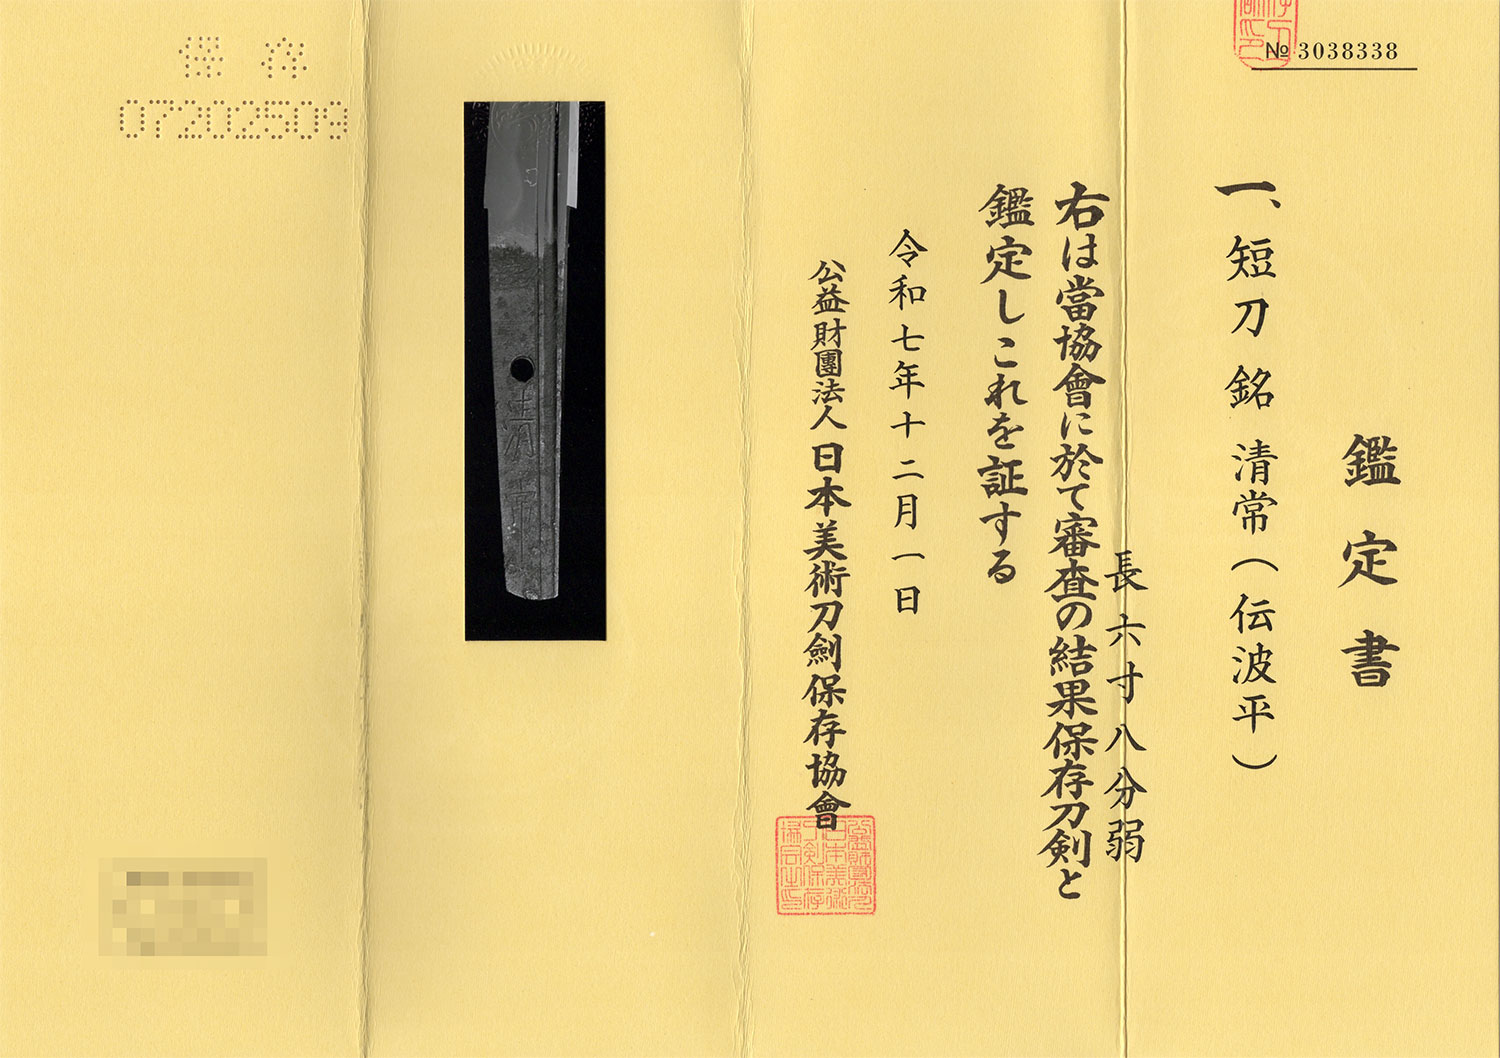 № 3038338
鑑定書
一、短刀 銘 清常（伝波平）
長六寸八分弱
右は當協會に於て審査の結果保存刀剣と
鑑定しこれを証する
令和七年十二月一日
公益財團法人 日本美術刀劍保存協會
保存
07202509
清常